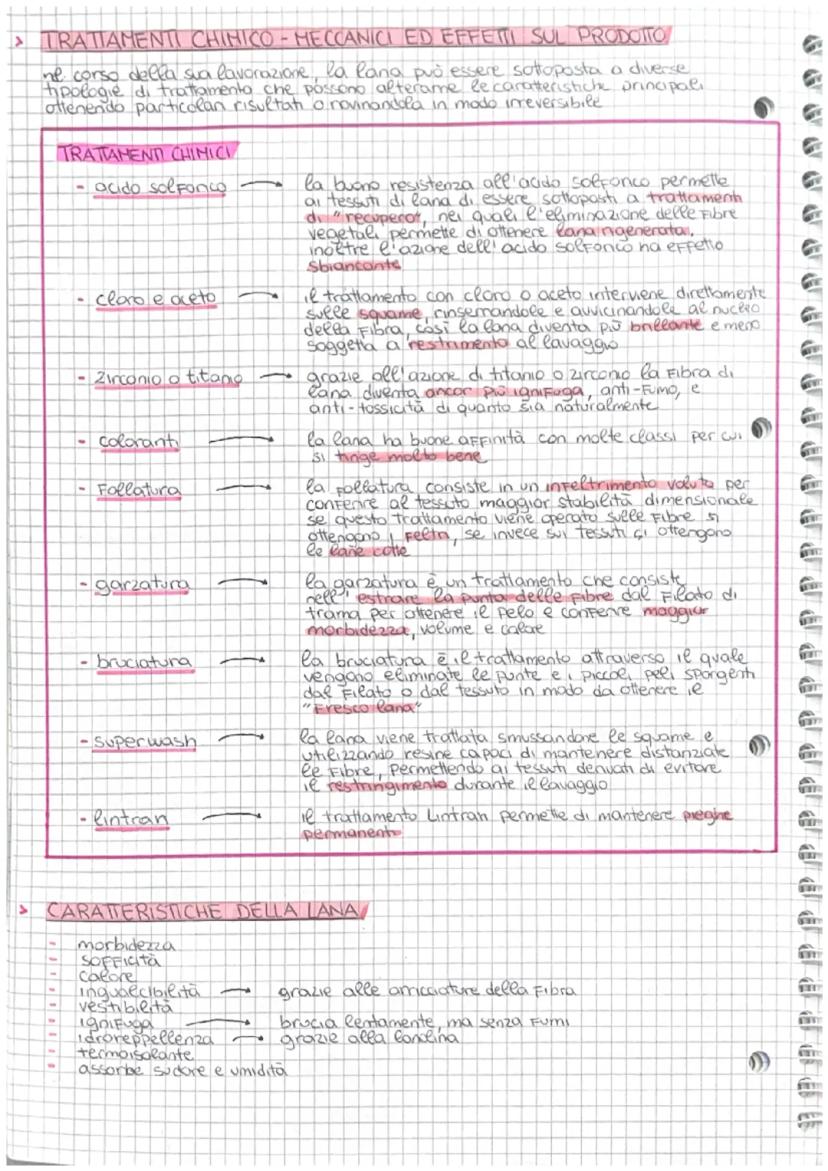 > TRATTAMENTI CHIMICO - MECCANICI ED EFFETTI SUL PRODOTTO
nel corso della sua lavorazione, la lana può essere sottoposta a diverse
tipologie di trattamento che possono alterarne le caratteristiche principali
ottenendo particolari risultati o rovinandola in modo irreversibile
TRATTAMENTI CHIMICI
- acido solforico → la buona resistenza all'acido solforico permette
ai tessuti di lana di essere sottoposti a trattamenti
di "recupero", nei quali l'eliminazione delle fibre
vegetali permette di ottenere lana rigenerata,
inoltre l'azione dell'acido solforico ha effetto
sbiancante
- cloro e aceto → il trattamento con cloro o aceto interviene direttamente
sulle squame, rinserrandole e avvicinandole al nucleo
della fibra, così la lana diventa più brillante e meno
soggetta a restrimento al lavaggio
- zirconio o titanio → grazie all'azione di titanio o zirconio la fibra di
lana diventa ancor più ignifuga, anti-fumo, e
anti-tossicità di quanto sia naturalmente
- coloranti → la lana ha buone affinità con molte classi per cui
si tinge molto bene
- Follatura → la follatura consiste in un infeltrimento voluto per
conferire al tessuto maggior stabilità dimensionale
se questo trattamento viene operato sulle fibre si
ottengono i feltri, se invece sui tessuti si ottengono
le lane cotte
- garzatura → la garzatura è un trattamento che consiste
nell'estrarre la punta delle fibre dal filato di
trama per ottenere il pelo e conferire maggior
morbidezza, volume e calore
- bruciatura → la bruciatura è il trattamento attraverso il quale
vengono eliminate le punte e i piccoli peli sporgenti
dal filato o dal tessuto in modo da ottenere il
"Fresco lana"
- superwash → la lana viene trattata smussandone le squame e
utilizzando resine capaci di mantenere distanziate
le fibre, permettendo ai tessuti derivati di evitare
il restringimento durante il lavaggio
- lintran → il trattamento Lintran permette di mantenere pieghe
permanenti
> CARATTERISTICHE DELLA LANA
- morbidezza
- sofficità
- calore
- ingualcibilità → grazie alle arricciature della fibra
- vestibilità
- ignifuga → brucia lentamente, ma senza fumi
- idroreppellenza → grazie alla lanolina
- termoisolante
- assorbe sudore e umidità